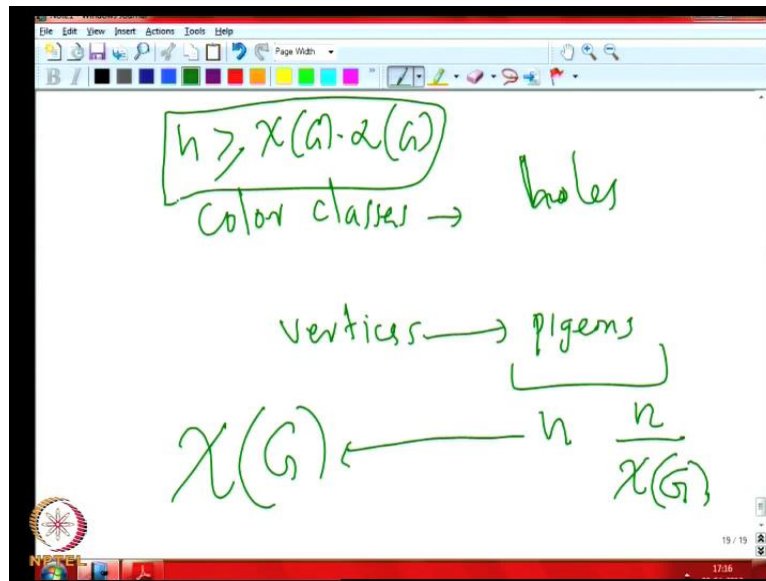 Note1 - Windows Journal
File Edit View Insert Actions Tools Help
Page Width
B I
n ≥ χ(G)·α(G)
color classes → holes
vertices → pigeons
χ(G) ← n n/χ(G)
19 / 19
NPTEL
17:16